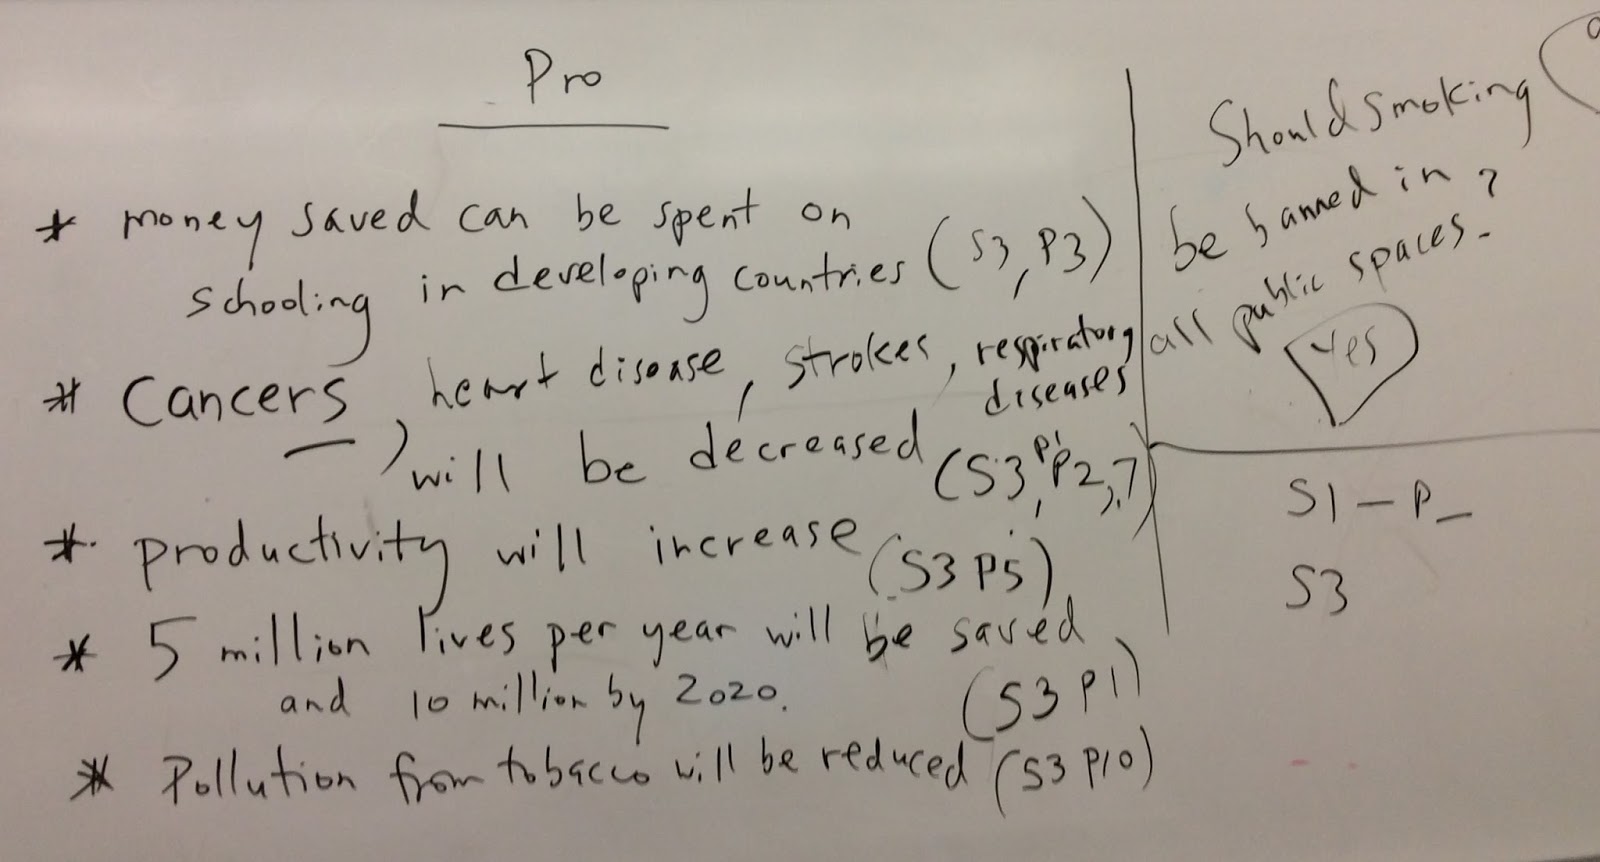 Pro
* money saved can be spent on
schooling in developing countries (S3, P3)
* Cancers, heart disease, strokes, respiratory
diseases
will be decreased (S3, P1, P2, 7)
* productivity will increase (S3 P5)
* 5 million lives per year will be saved
and 10 million by 2020. (S3 P1)
* Pollution from tobacco will be reduced (S3 P10)
Should smoking
be banned in
all public spaces?
Yes
S1 - P_
S3